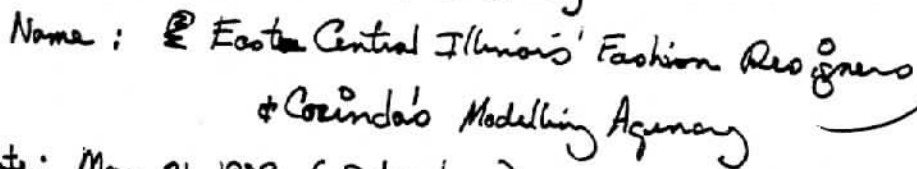 Name: East Central Illinois' Fashion Designers
& Corinda's Modelling Agency